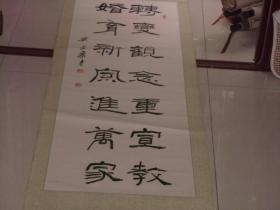 轉變觀念重宣教
婚育新風進萬家